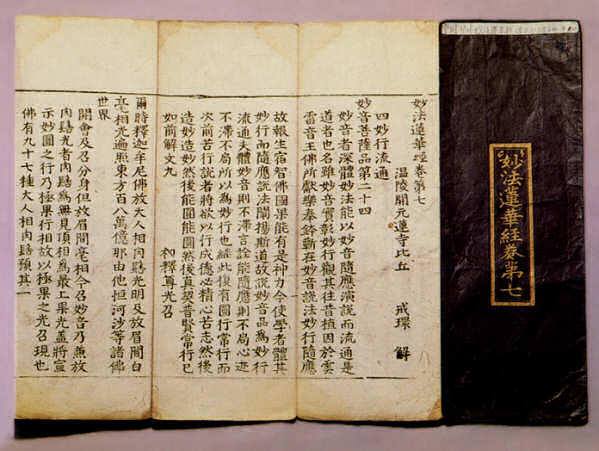 妙法蓮華經卷第七
妙法蓮華經卷第七
温陵開元蓮寺比丘 戒環 解
四妙行流通
妙音菩薩品第二十四
妙音者深體妙法能以妙音隨應演說而流通是
道者也名雖妙音實彰妙行觀其往昔植因於雲
雷音王佛所獻樂奉鉢在妙音說法妙行隨應
故報生宿智佛國果能有是神力今使學者體其
妙行而隨應說法闡揚斯道故說妙音品爲妙行
流通夫體妙音則不滯言詮能隨應則不局心迹
不滯不局所以爲妙行也繼此復有圓行常行而
次前苦行說者將欲以行成德必精心苦志然後
造妙造妙然後能圓能圓然後真契普賢常行已
如前解文九 初釋尊光召
爾時釋迦牟尼佛放大人相肉髻光明及放眉間白
毫相光遍照東方百八萬億那由他恒河沙等諸佛
世界
開會及召分身但放眉間毫相今召妙音乃兼放
肉髻光者肉髻爲無見頂相爲最上果光蓋將宣
示妙圓之行乃極果行相故以極果之光召現也
佛有九十七種大人相肉髻頂其一